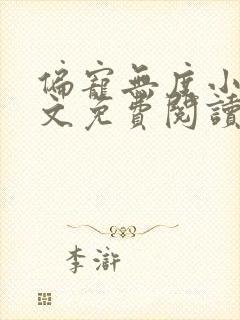 偏寵無度小
文免費閱讀
李滸